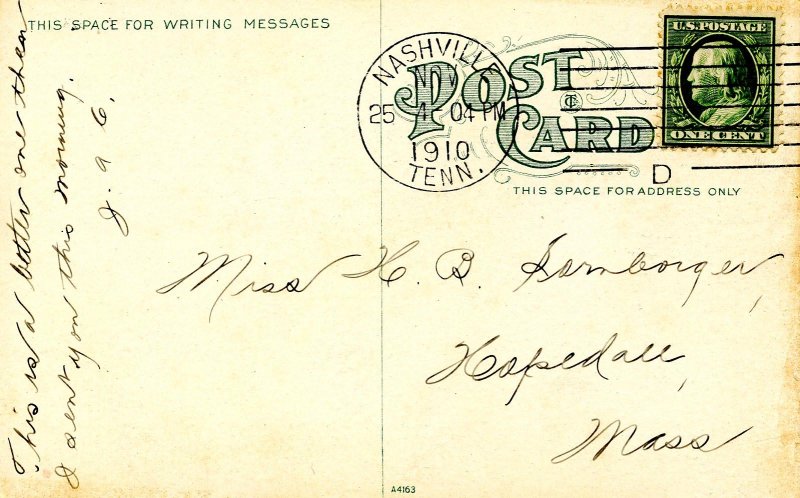 THIS SPACE FOR WRITING MESSAGES
This is a better one than
I sent you this morning.
J. A. C.
POST
CARD
THIS SPACE FOR ADDRESS ONLY
U.S. POSTAGE
ONE CENT
NASHVILLE
NOV
25 4-04 PM
1910
TENN.
D
Miss H. B. Sornborger,
Hopedale,
Mass
A4163